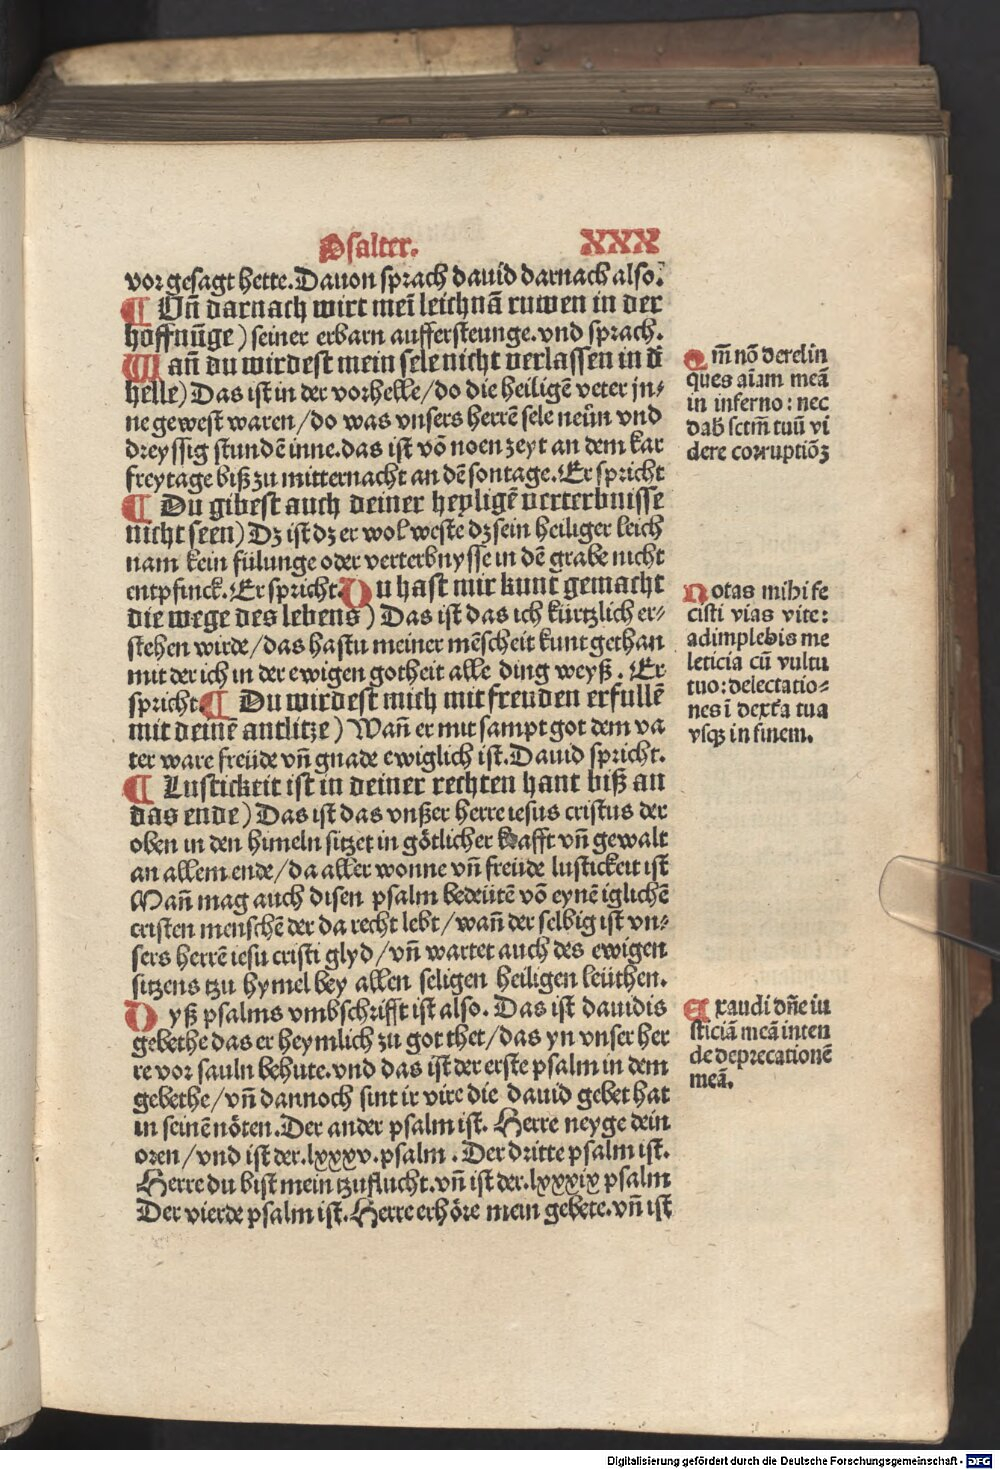 Psalter. XXX
vor gesagt hette. Dauon sprach dauid darnach also.
¶ Vñ darnach wirt mei leichnā ruwen in der
hoffnūge) seiner erbarn auffersteunge. vnd sprach.
Wañ du wirdest mein sele nicht verlassen in d̄
helle) Das ist in der vorhelle/do die heiligē veter jn⸗
ne gewest waren/do was vnsers herrē sele neün vnd
dreyssig stundē inne. das ist vō noen zeyt an dem kar
freytage biß zu mitternacht an dē sontage. Er spricht
¶ Du gibest auch deiner heyligē verterbnisse
nicht seen) Dz ist dz er wol weste dz sein heiliger leich
nam kein fülunge oder verterbnysse in dē grabe nicht
entpfinck. Er spricht. Du hast mir kunt gemacht
die wege des lebens) Das ist das ich kürtzlich er⸗
stehen wirde/das hastu meiner mēscheit kunt gethan
mit der ich in der ewigen gotheit alle ding weyß. Er
spricht ¶ Du wirdest mich mit freuden erfullē
mit deinē antlitze) Wañ er mit sampt got dem va
ter ware freüde vñ gnade ewiglich ist. Dauid spricht.
¶ Lustickeit ist in deiner rechten hant biß an
das ende) Das ist das vnßer herre iesus cristus der
oben in den himeln sitzet in götlicher krafft vñ gewalt
an allem ende/da aller wonne vñ freüde lustickeit ist
Mañ mag auch disen psalm bedeütē vō eynē iglichē
cristen menschē der da recht lebt/wañ der selbig ist vn⸗
sers herrē iesu cristi glyd/vñ wartet auch des ewigen
sitzens tzu hymel bey allen seligen heiligen leüthen.
Dyß psalms vmbschrifft ist also. Das ist dauidis
gebethe das er heymlich zu got thet/das yn vnser her
re vor sauln behute. vnd das ist der erste psalm in dem
gebethe/vñ dannoch sint ir vire die dauid gebet hat
in seinē nöten. Der ander psalm ist. Herre neyge dein
oren/vnd ist der. lxxxv. psalm. Der dritte psalm ist.
Herre du bist mein tzuflucht. vñ ist der. lxxxix psalm
Der vierde psalm ist. Herre erhöre mein gebete. vñ ist
Qm̄ nō derelin
ques aīam meā
in inferno: nec
dab̄ sctm̄ tuū vi
dere corruptiōꝫ
Notas mihi fe
cisti vias vite:
adimplebis me
leticia cū vultu
tuo: delectatio⸗
nes ī dextra tua
vsqꝫ in finem.
Exaudi dñe iu
sticiā meā inten
de deprecationē
meā.
Digitalisierung gefördert durch die Deutsche Forschungsgemeinschaft - DFG